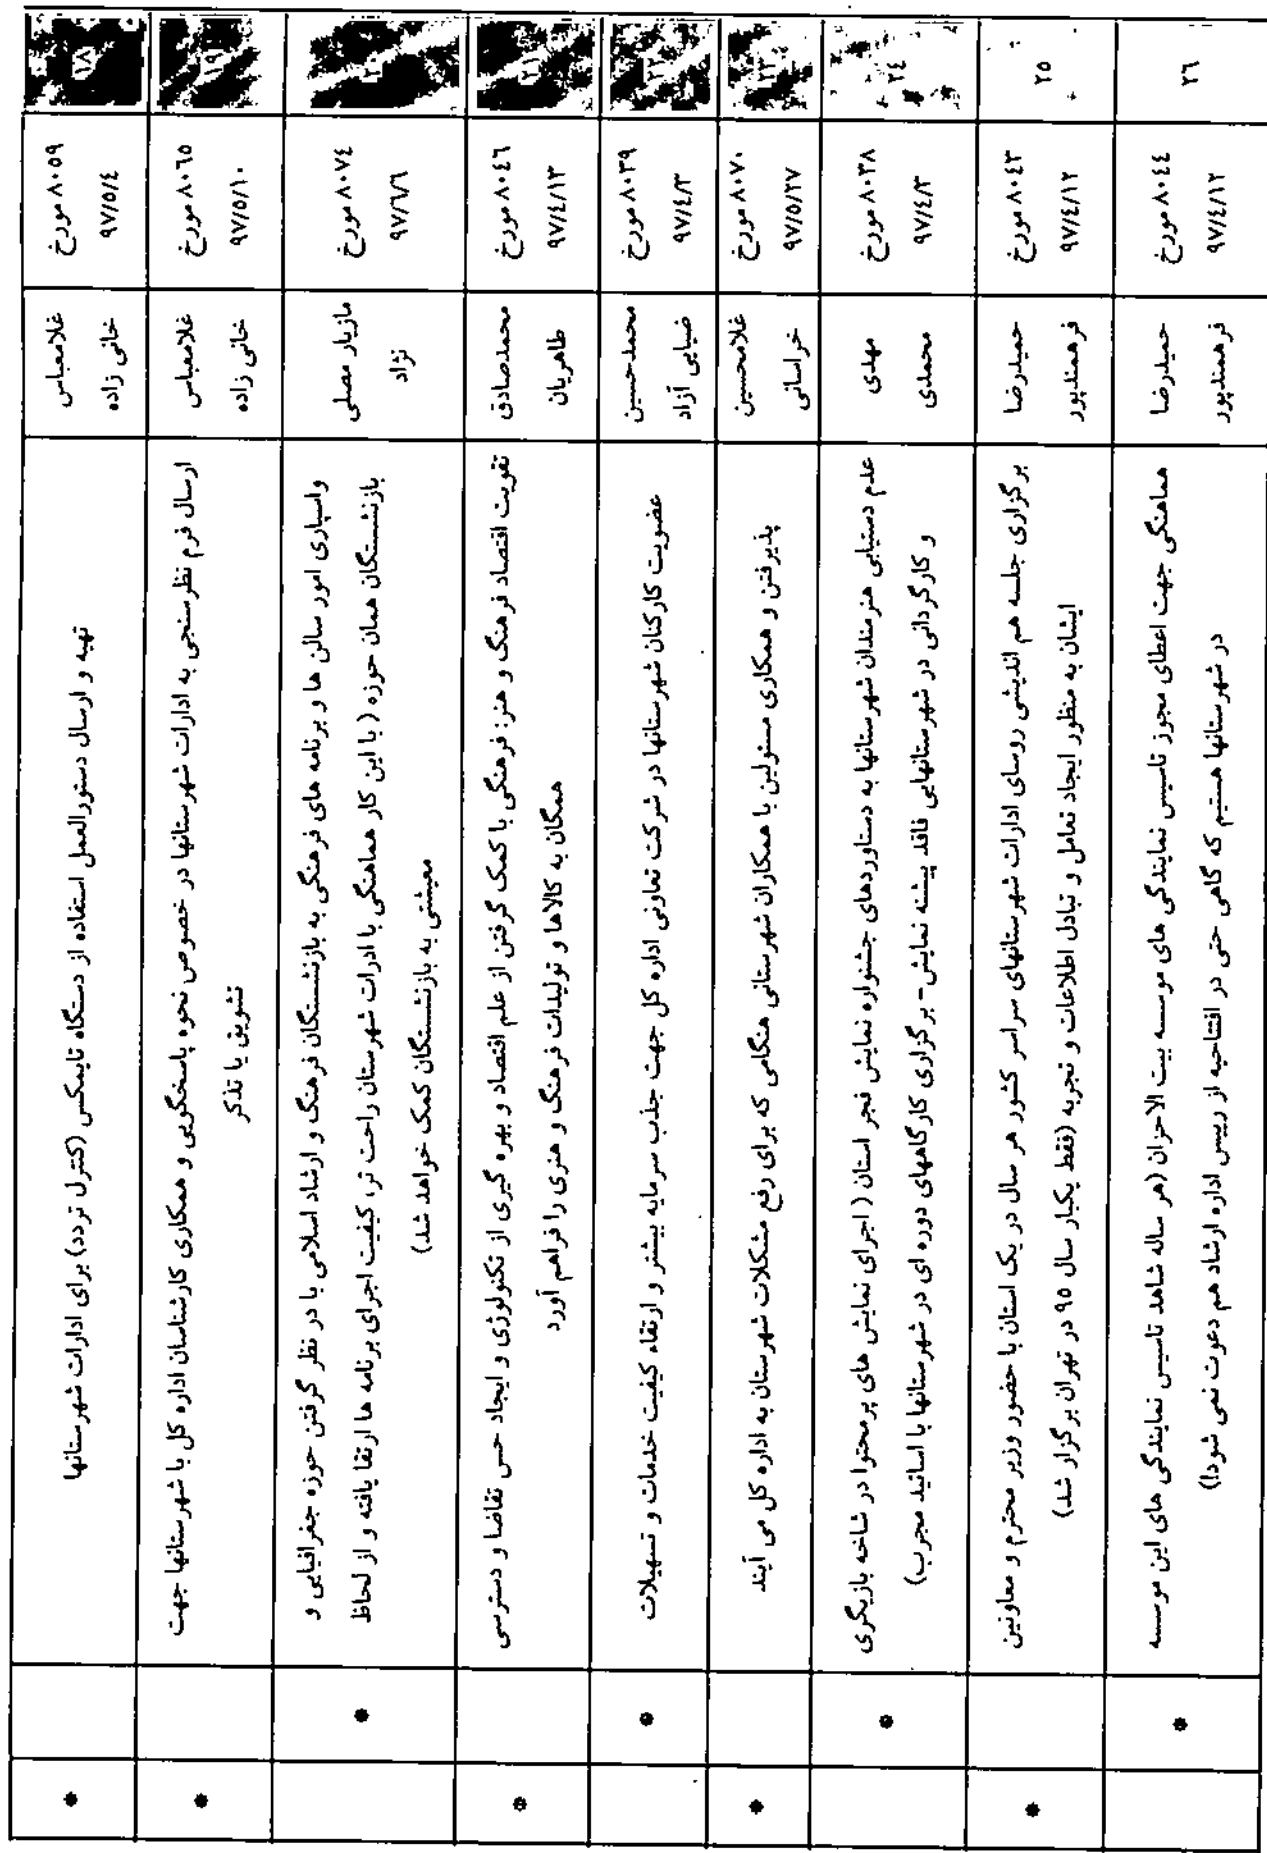 ١٨
٨٠٥٩ مورخ
٩٧/٥/٤
غلامعباس
خانی زاده
تهیه و ارسال دستورالعمل استفاده از دستگاه تایمکس (کنترل تردد) برای ادارات شهرستانها
*
١٩
٨٠٦٥ مورخ
٩٧/٥/١٠
غلامعباس
خانی زاده
ارسال فرم نظرسنجی به ادارات شهرستانها در خصوص نحوه پاسخگویی و همکاری کارشناسان اداره کل با شهرستانها جهت
تشویق یا تذکر
*
٢٠
٨٠٧٤ مورخ
٩٧/٦/٦
مازیار مصلی
نژاد
واسپاری امور سالن ها و برنامه های فرهنگی به بازنشستگان فرهنگ و ارشاد اسلامی با در نظر گرفتن حوزه جغرافیایی و
بازنشستگان همان حوزه (با این کار هماهنگی با ادرات شهرستان راحت تر، کیفیت اجرای برنامه ها ارتقا یافته و از لحاظ
معیشتی به بازنشستگان کمک خواهد شد)
*
٢١
٨٠٤٦ مورخ
٩٧/٤/١٣
محمدصادق
طاهریان
تقویت اقتصاد فرهنگ و هنر: فرهنگی با کمک گرفتن از علم اقتصاد و بهره گیری از تکنولوژی و ایجاد حس تقاضا و دسترسی
همگان به کالاها و تولیدات فرهنگ و هنری را فراهم آورد
*
٢٢
٨٠٣٩ مورخ
٩٧/٤/٣
محمدحسین
ضیایی آزاد
عضویت کارکنان شهرستانها در شرکت تعاونی اداره کل جهت جذب سرمایه بیشتر و ارتقاء کیفیت خدمات و تسهیلات
*
٢٣
٨٠٧٠ مورخ
٩٧/٥/٢٧
غلامحسین
خراسانی
پذیرفتن و همکاری مسئولین با همکاران شهرستانی هنگامی که برای رفع مشکلات شهرستان به اداره کل می آیند
*
٢٤
٨٠٣٨ مورخ
٩٧/٤/٣
مهدی
محمدی
علم دستیابی هنرمندان شهرستانها به دستاوردهای جشنواره نمایش فجر استان (اجرای نمایش های پرمحتوا در شاخه بازیگری
و کارگردانی در شهرستانهایی فاقد پیشنه نمایش- برگزاری کارگاههای دوره ای در شهرستانها با اساتید مجرب)
*
٢٥
٨٠٤٣ مورخ
٩٧/٤/١٢
حمیدرضا
فرهمندپور
برگزاری جلسه هم اندیشی روسای ادارات شهرستانهای سراسر کشور هر سال در یک استان با حضور وزیر محترم و معاونین
ایشان به منظور ایجاد تعامل و تبادل اطلاعات و تجربه (فقط یکبار سال ٩٥ در تهران برگزار شد)
*
٢٦
٨٠٤٤ مورخ
٩٧/٤/١٢
حمیدرضا
فرهمندپور
هماهنگی جهت اعطای مجوز تاسیس نمایندگی های موسسه بیت الاحزان (هر ساله شاهد تاسیس نمایندگی های این موسسه
در شهرستانها هستیم که گاهی حتی در افتتاحیه از رییس اداره ارشاد هم دعوت نمی شود!)
*